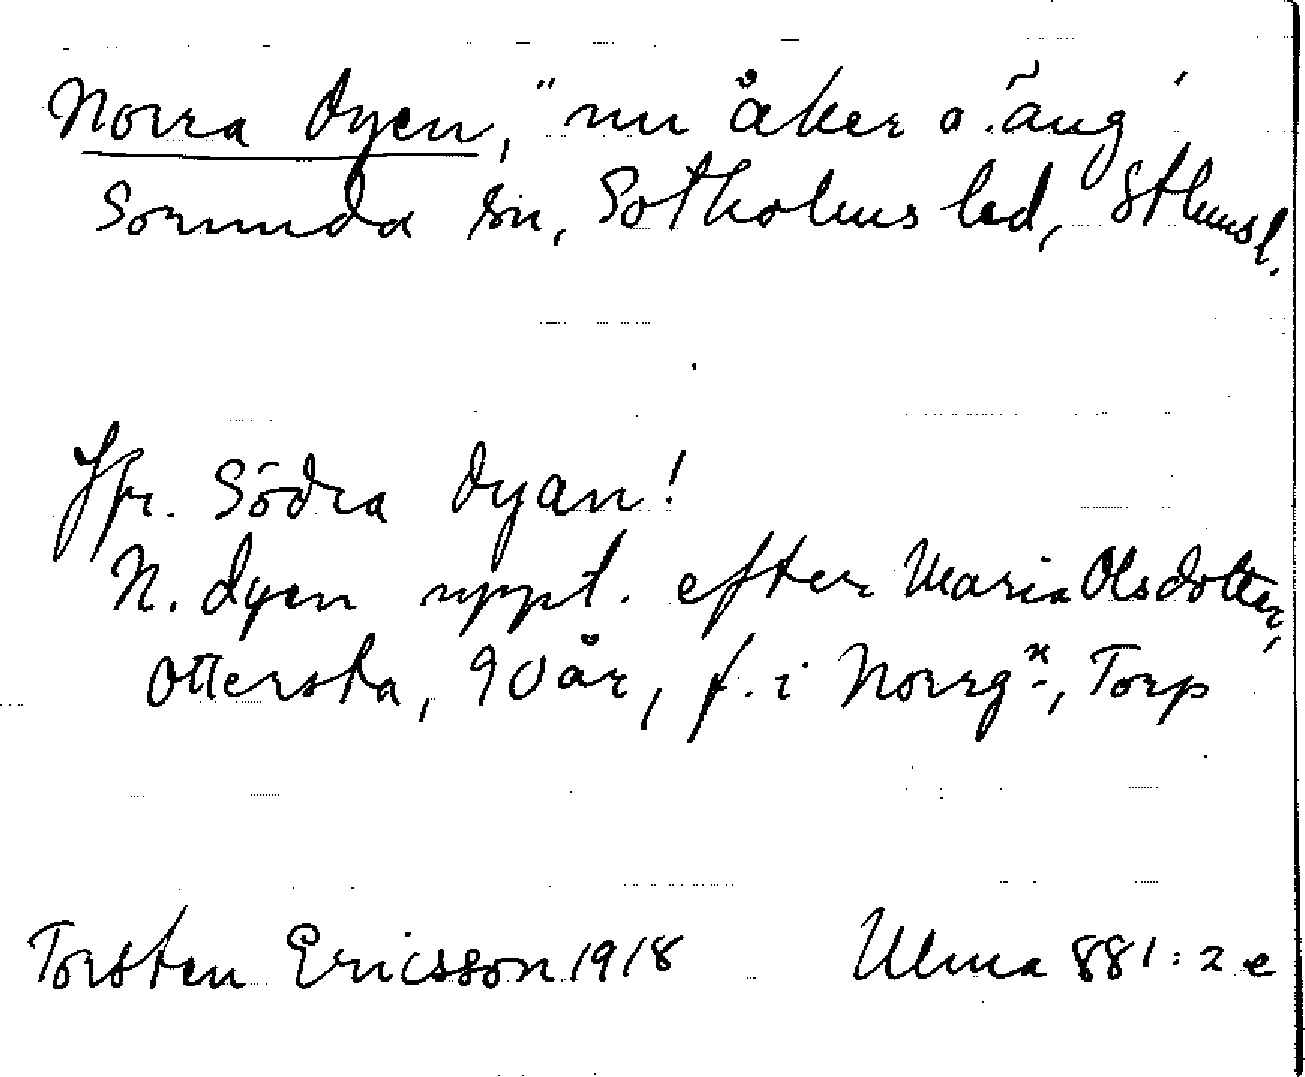 Norra Dyen, "nu åker o. äng"
Sorunda sn, Sotholms hd, Sthmsl.
Jfr. Södra dyan!
N. dyen uppt. efter Maria Olsdotter,
Ottersta, 90 år, f. i Norrgn, Torp
Torsten Ericsson 1918 Ulma 881:2 e